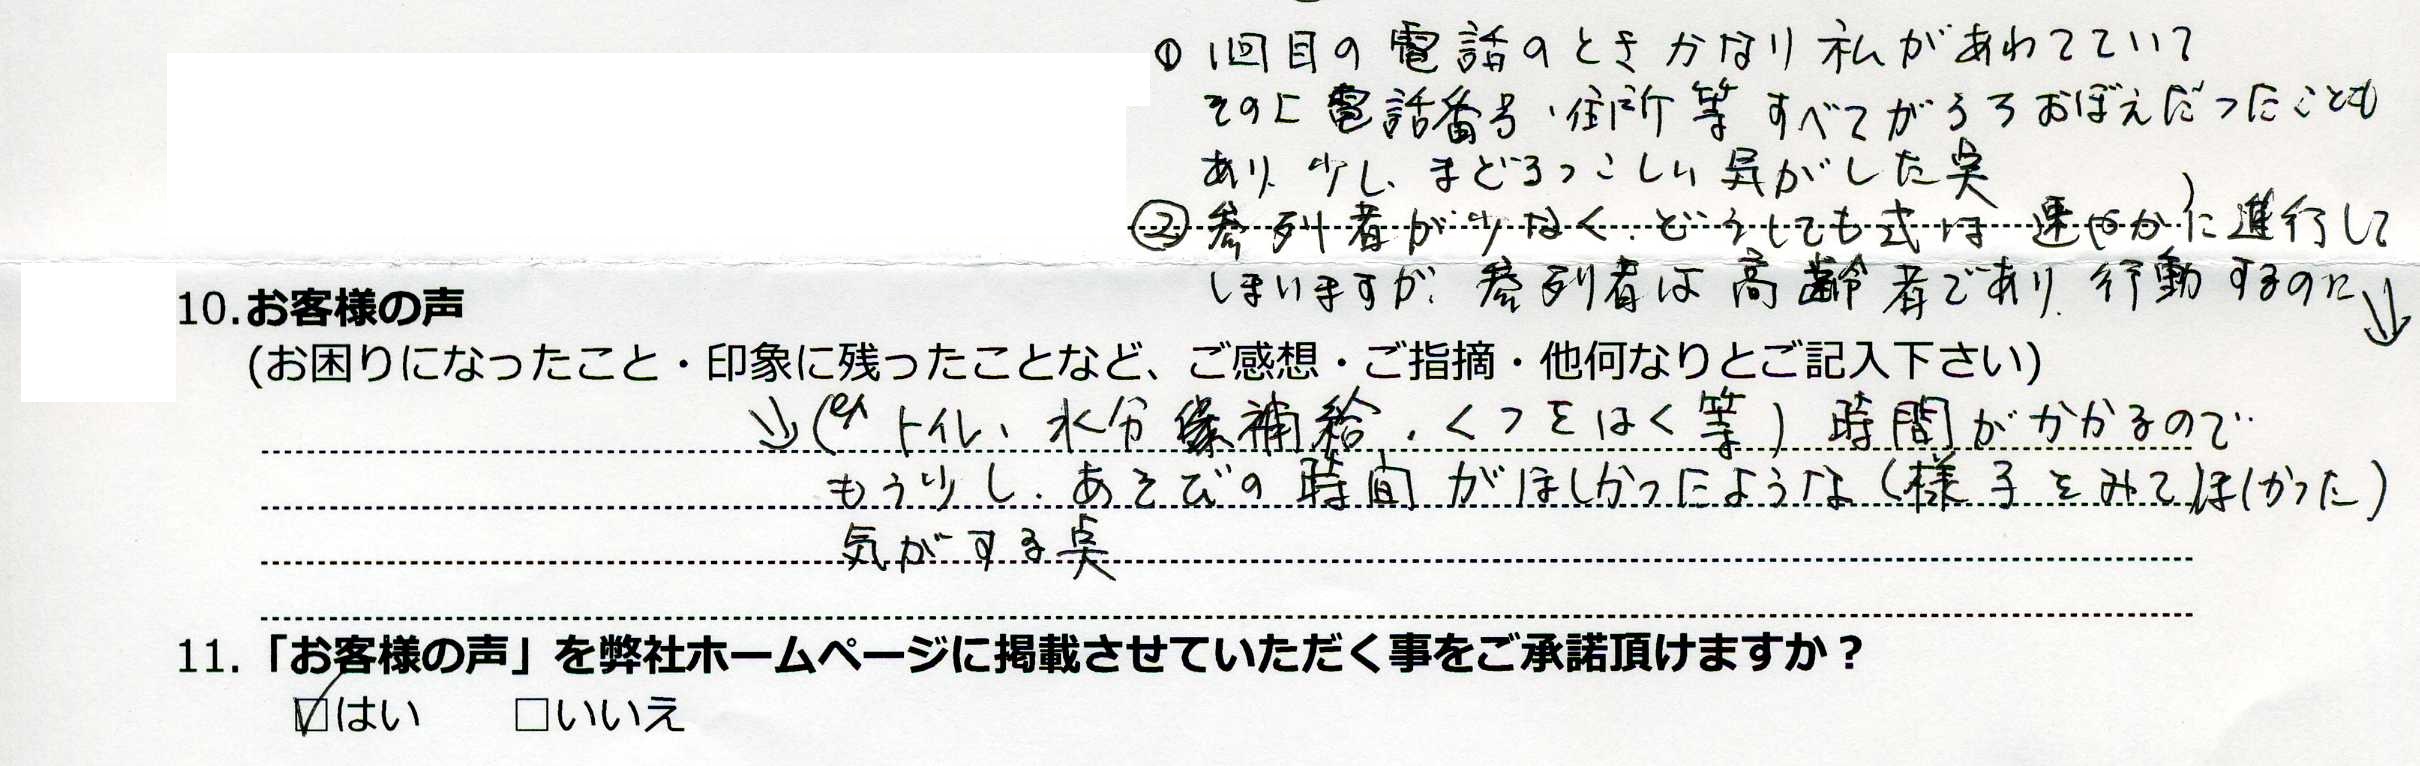 ① 1回目の電話のときかなり私があわてていて
その上電話番号・住所等すべてがうろおぼえだったことも
あり、少し、まどろっこしい気がした点
② 参列者が少なく、どうしても式は速やかに進行して
しまいますが、参列者は高齢者であり、行動するのに↓
10.お客様の声
(お困りになったこと・印象に残ったことなど、ご感想・ご指摘・他何なりとご記入下さい)
↓(トイレ、水分補給、くつをはく等)時間がかかるので
もう少し、あそびの時間がほしかったような(様子をみてほしかった)
気がする点
11.「お客様の声」を弊社ホームページに掲載させていただく事をご承諾頂けますか？
☑はい □いいえ